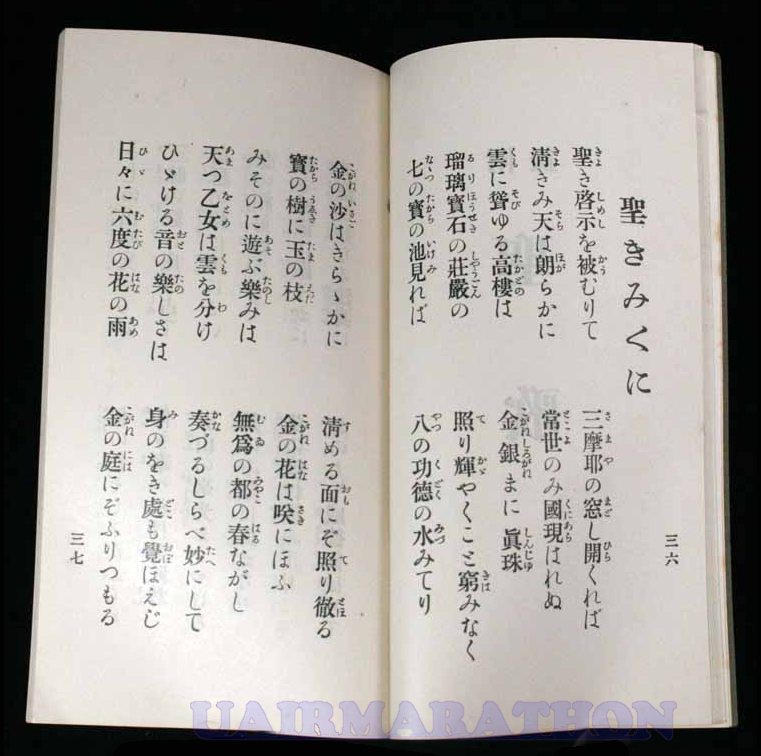 聖きみくに
聖き啓示を被むりて
三摩耶の窓し開くれば
淸きみ天は朗らかに
常世のみ國現はれぬ
雲に聳ゆる高樓は
金銀まに眞珠
瑠璃寶石の莊嚴の
照り輝やくこと窮みなく
七の寶の池見れば
八の功德の水みてり
三六
金の沙はきらゝかに
淸める面にぞ照り徹る
寶の樹に玉の枝
金の花は咲にほふ
みそのに遊ぶ樂みは
無爲の都の春ながし
天つ乙女は雲を分け
奏づるしらべ妙にして
ひゞける音の樂しさは
身のをき處も覺ほえじ
日々に六度の花の雨
金の庭にぞふりつもる
三七
UAIRMARATHON